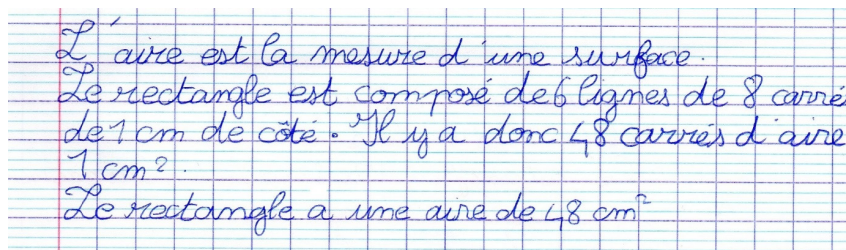 L'aire est la mesure d'une surface.
Le rectangle est composé de 6 lignes de 8 carré
de 1 cm de côté. Il y a donc 48 carrés d'aire
1 cm².
Le rectangle a une aire de 48 cm²